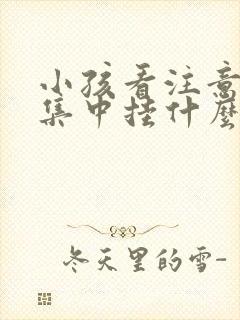 小孩看注意
集中挂什麼
冬天里的雪-